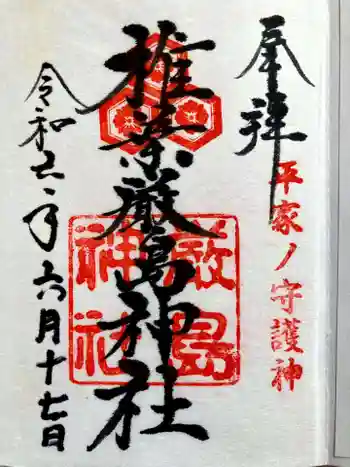 奉拝
平家ノ守護神
椎葉厳島神社
厳島
神社
令和元年六月十七日